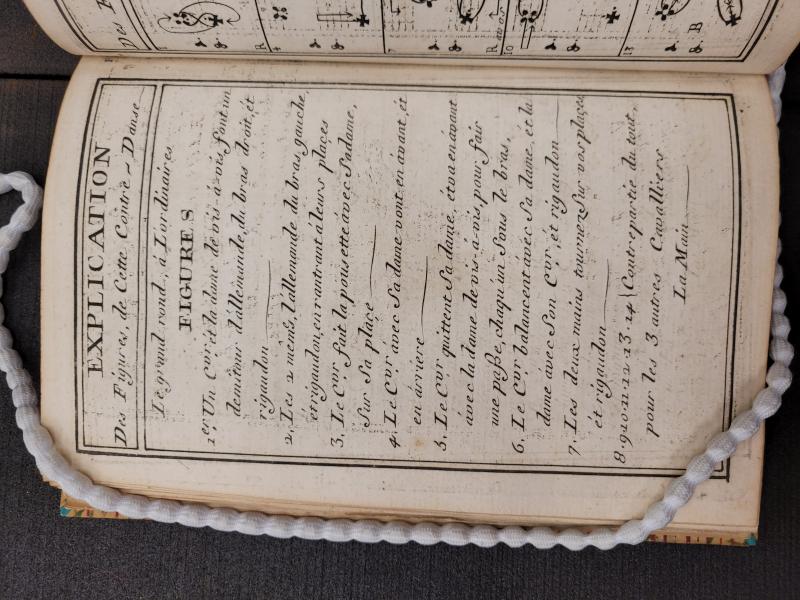 EXPLICATION
Des Figures, de Cette Contre-Danse
Le grand rond, à L'ordinaires
FIGURES
1er, Un Cvr. et la dame de vis-à-vis font un
demi tour d'allemande, du bras droit, ét
rigaudon
2, Les 2 mêmes, l'allemande du bras gauche,
ét rigaudon, en rantrant à leurs places
3, Le Cvr. fait la pousette avéc Sa dame,
Sur Sa plaçe
4, Le Cvr. avéc Sa dame vont en avant, ét
en arriere
5, Le Cvr quittent Sa dame, et va en avant
avéc la dame de vis-à-vis, pour fair
une paße, chaqu'un Sous le bras,
6, Le Cvr balancent avéc Sa dame, et la
dame avéc Son Cvr, ét rigaudon
7, Les deux mains tournez Sur vos plaçes
ét rigaudon
8. 9. 10. 11. 12. 13. 14 Contrepartie du tout,
pour les 3 autres Cavalliers
La Main
Des F
R
4
7
R
10
13
B